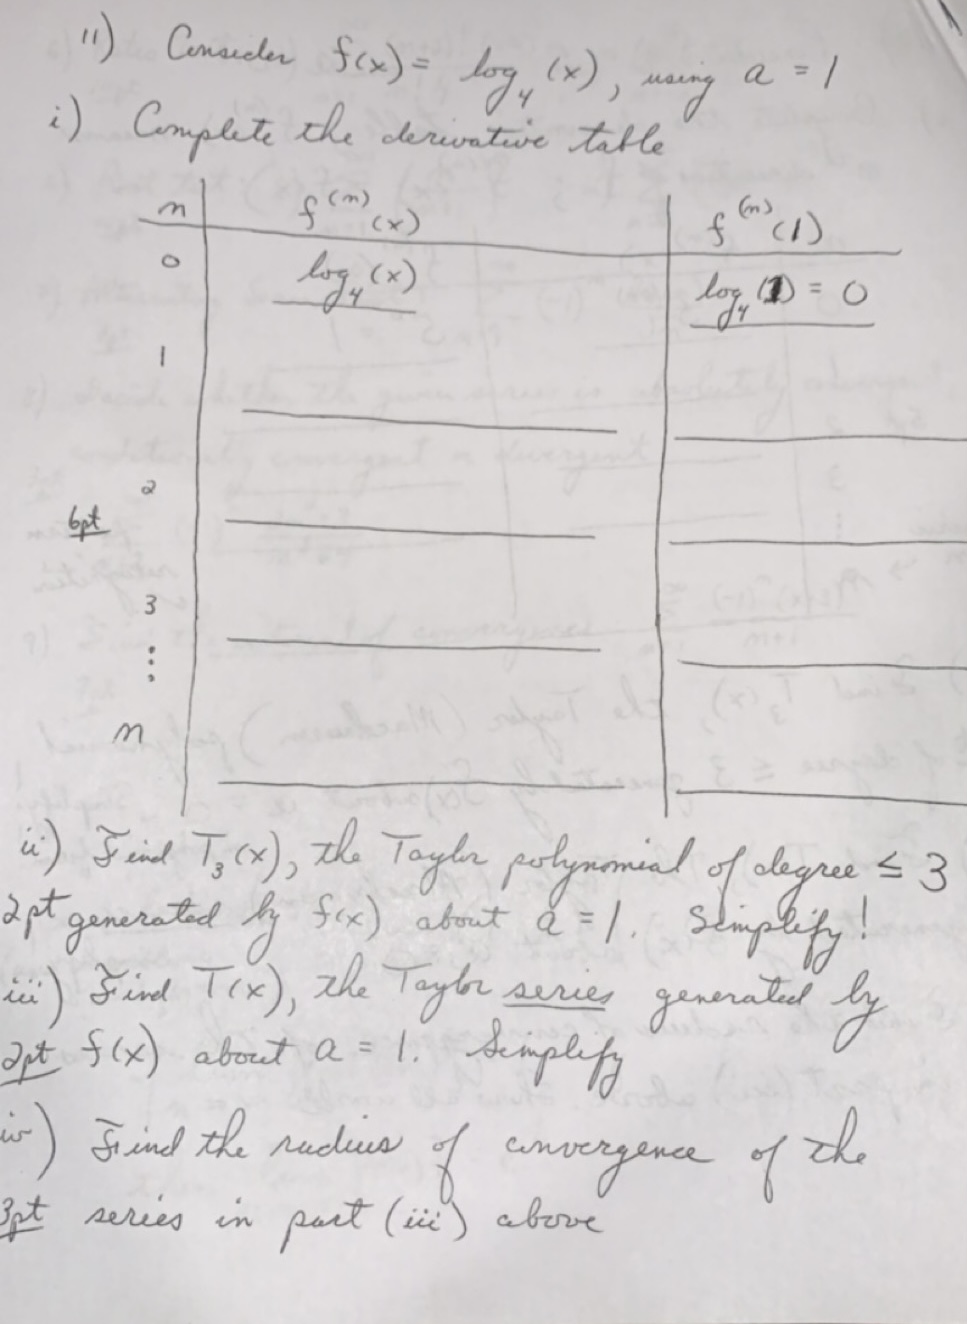 11) Consider f(x) = log₄(x), using a = 1
i) Complete the derivative table
n f⁽ⁿ⁾(x) f⁽ⁿ⁾(1)
0 log₄(x) log₄(1) = 0
1
2
6pt
3
⋮
n
ii) Find T₃(x), the Taylor polynomial of degree ≤ 3
2pt generated by f(x) about a = 1. Simplify!
iii) Find T(x), the Taylor series generated by
2pt f(x) about a = 1. Simplify
iv) Find the radius of convergence of the
3pt series in part (iii) above